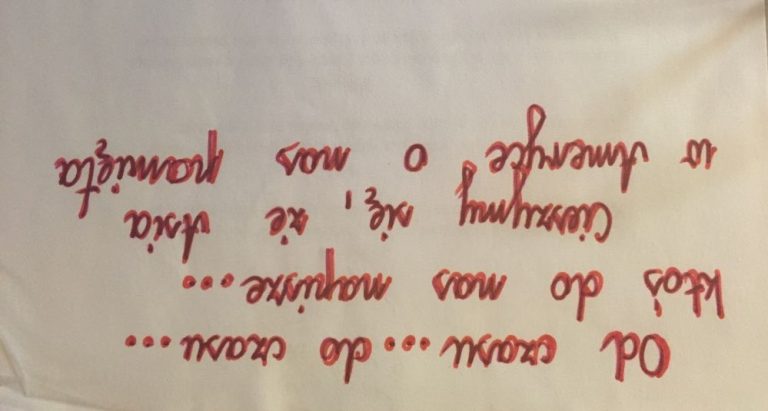 Od czasu ... do czasu ...
ktoś do nas napisze ...
Cieszymy się, że Asia
w Ameryce o nas pamięta